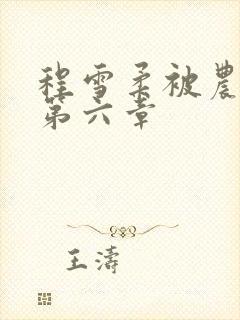 程雪柔被農
第六章
王濤